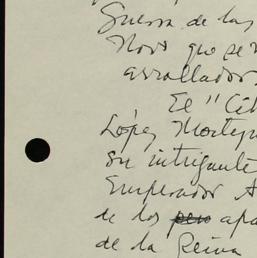 Guerra de las
Novo que se
arrollador
El "Ci
López Mostey
su intrigante
Emperador A
de los pero apa
de la Reina